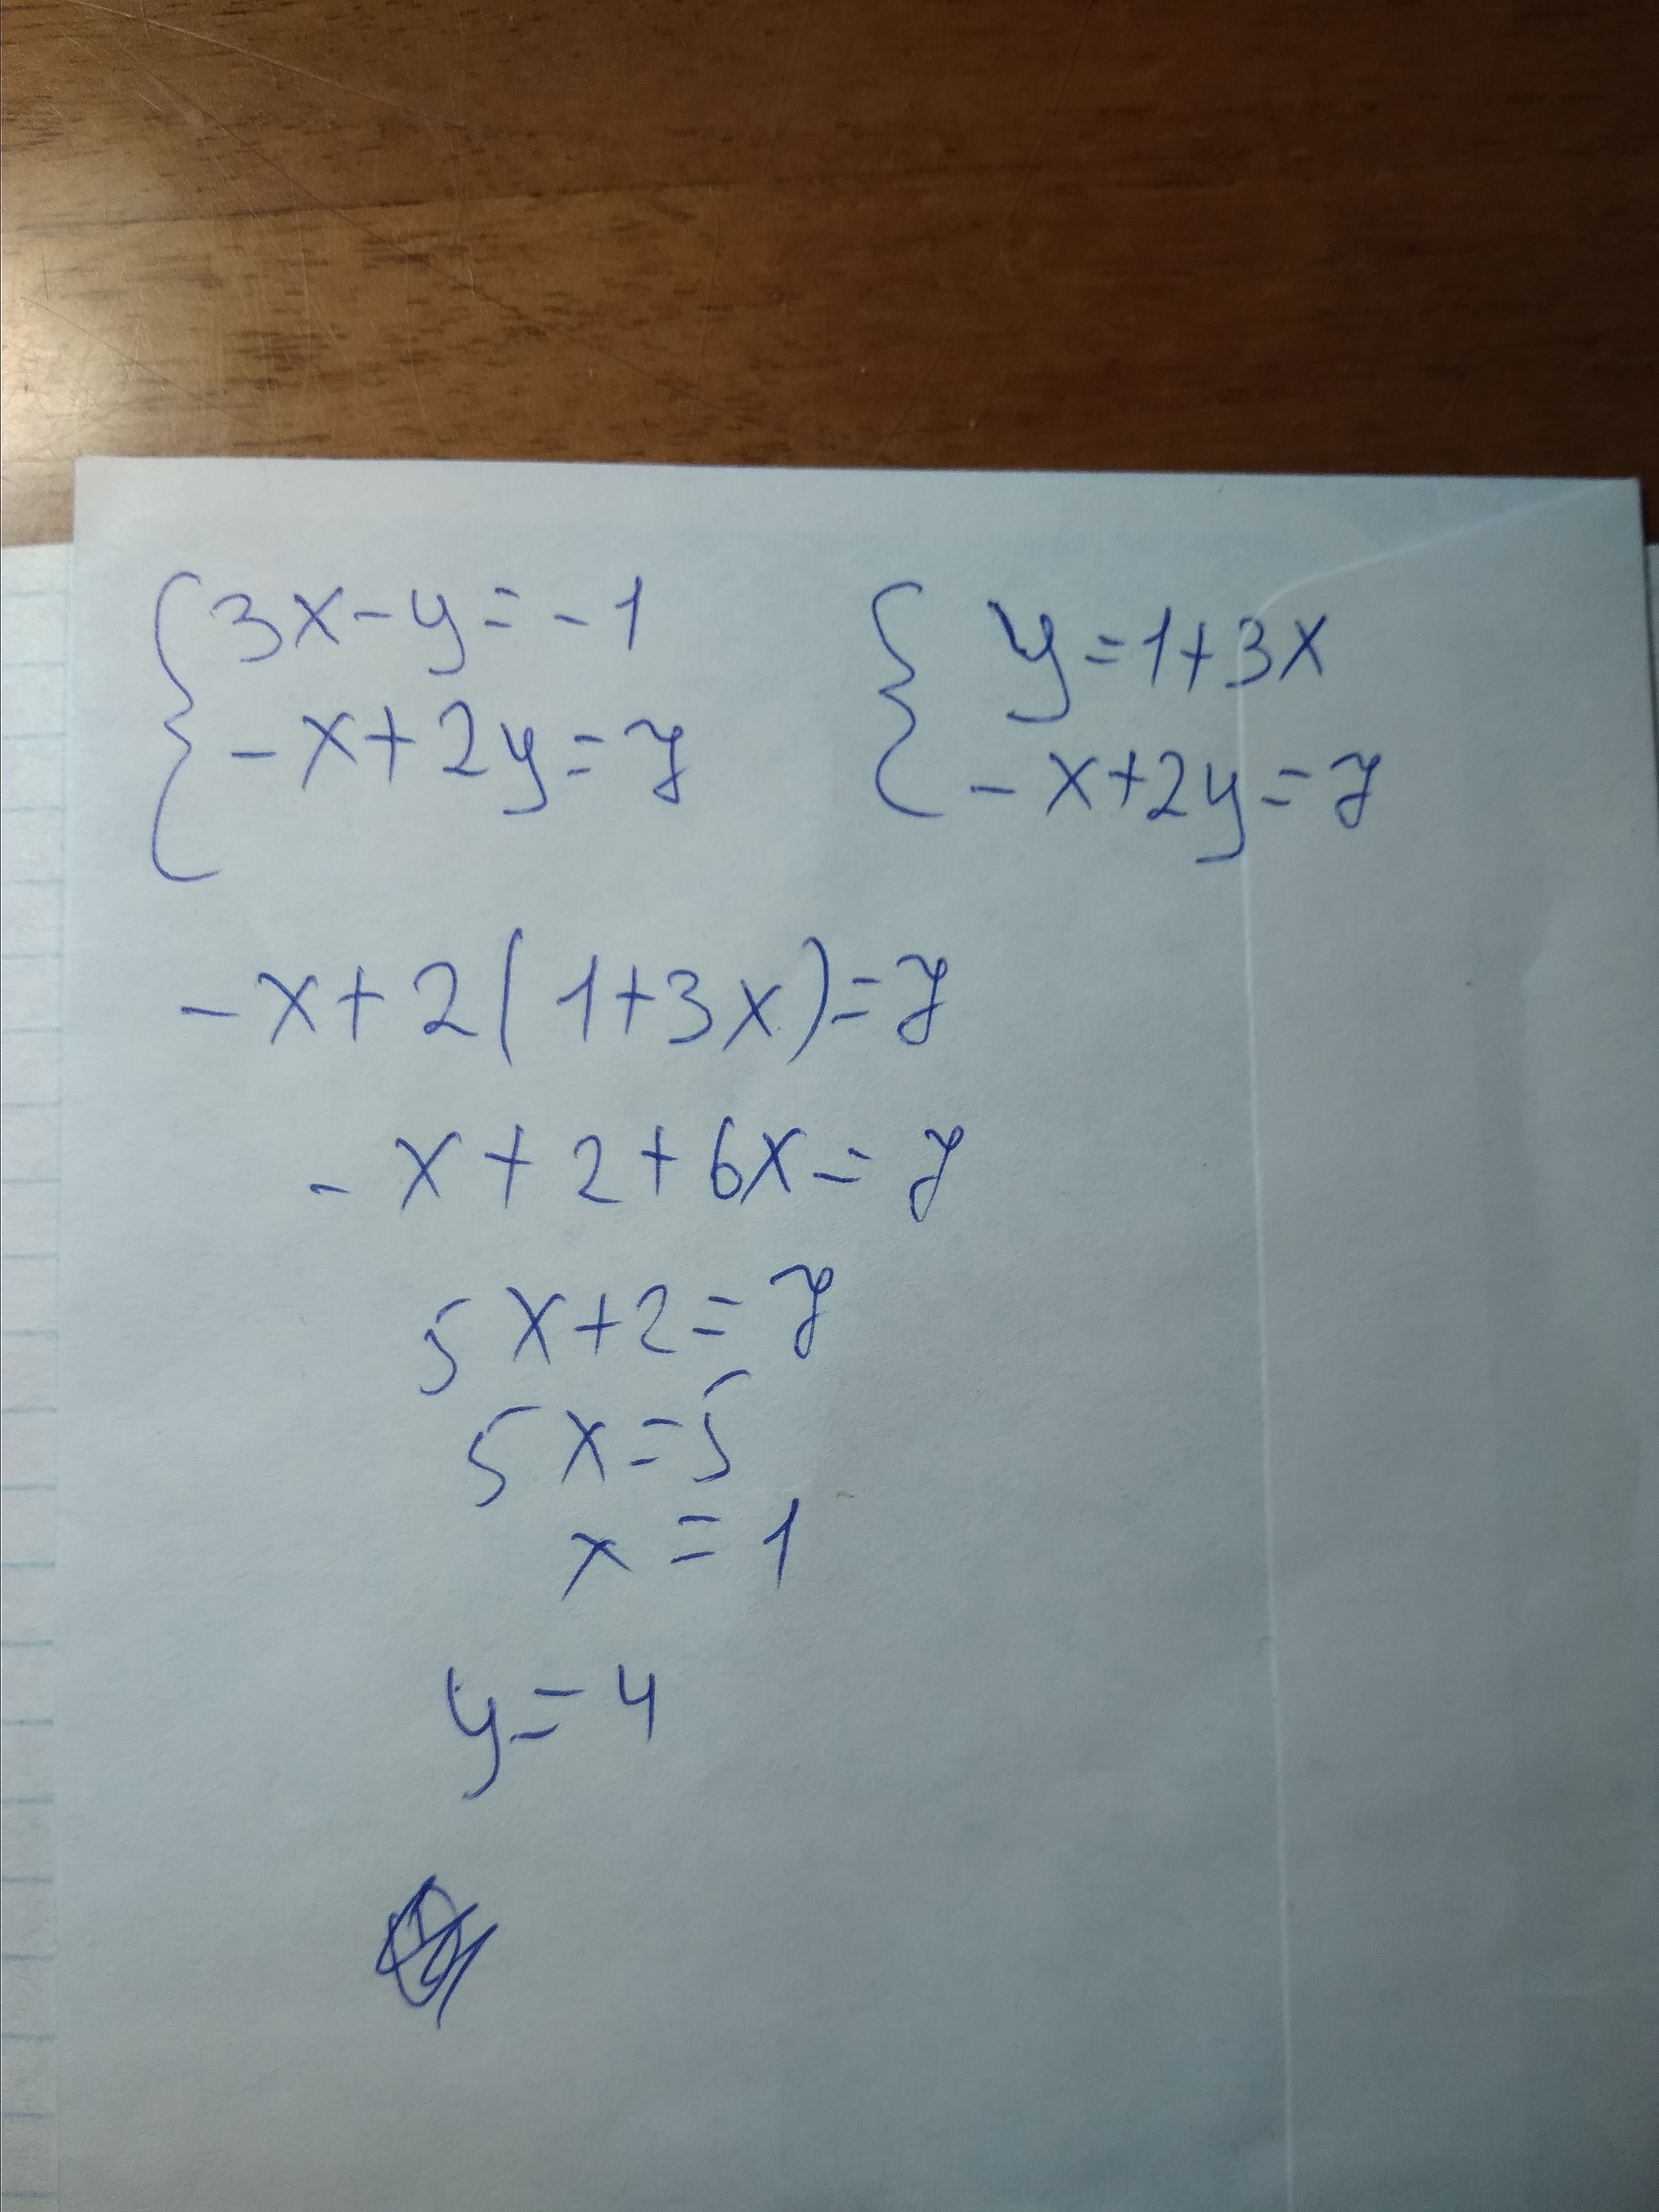 3x-y=-1
-x+2y=7
y=1+3x
-x+2y=7
-x+2(1+3x)=7
-x+2+6x=7
5x+2=7
5x=5
x=1
y=4